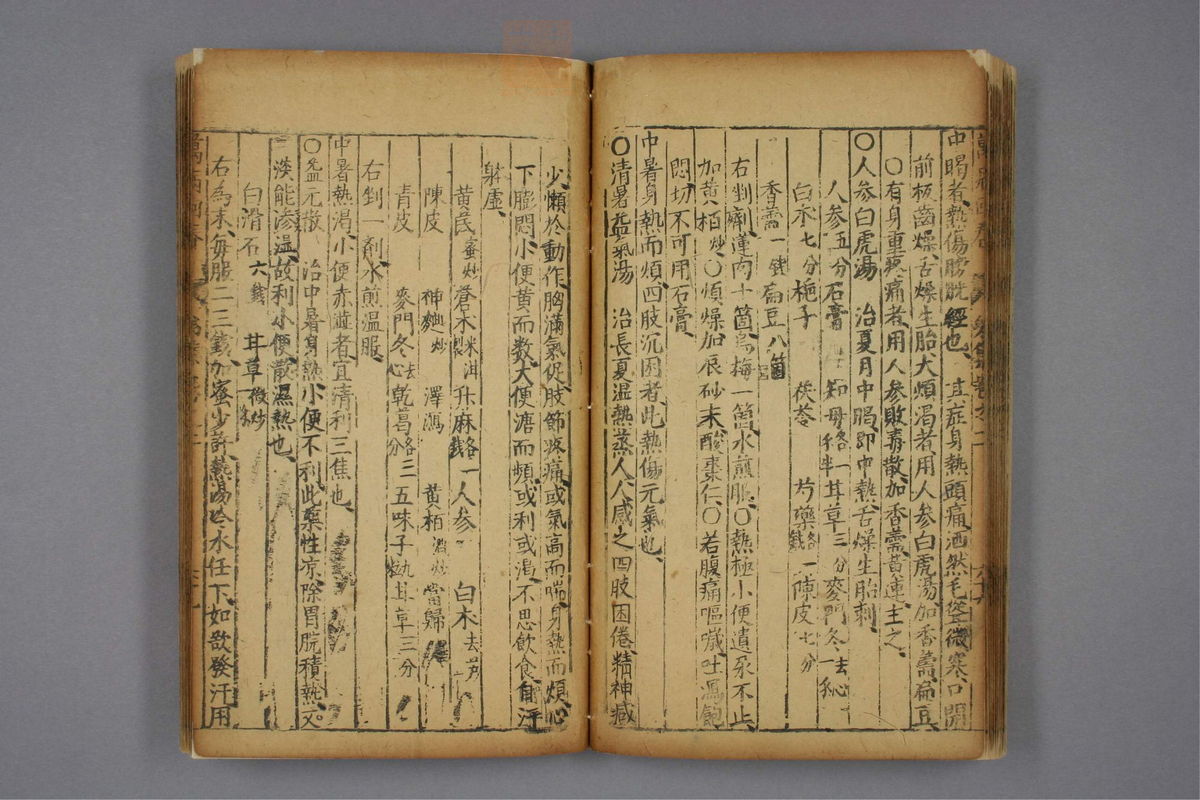 中暍者熱傷膀胱經也 其症身熱頭痛洒然毛聳微寒口開
前板齒燥舌燥生胎大煩渴者用人參白虎湯加香薷扁豆
〇有身重疼痛者用人參敗毒散加香薷黃連主之
〇人參白虎湯 治夏月中暍即中熱舌燥生胎刺
人參五分石膏 知母各一 甘草三分麥門冬去心一
白朮七分梔子 茯苓 芍藥各一錢 陳皮七分
香薷一錢扁豆八箇
右剉劑蓮肉十箇烏梅一箇水煎服〇熱極小便遺尿不止
加黃栢炒〇煩燥加辰砂末酸棗仁〇若腹痛嘔噦吐瀉飽
悶切不可用石膏
中暑身熱而煩四肢沉困者此熱傷元氣也
〇清暑益氣湯 治長夏溫熱蒸人人感之四肢困倦精神減
少懶於動作胸滿氣促肢節疼痛或氣高而喘身熱而煩心
下膨悶小便黃而數大便溏而頻或利或渴不思飲食自汗
躰虛
黃芪蜜炒蒼木米泔製升麻各一錢人參 白木去芦
陳皮 神麯炒 澤瀉 黃栢酒炒當歸
青皮 麥門冬去心乾葛各三分五味子 甘草三分
右剉一劑水煎溫服
中暑熱渴小便赤澁者宜清利三焦也
〇益元散 治中暑身熱小便不利此藥性凉除胃脘積熱又
淡能滲溫故利小便散濕熱也
白滑石六錢 甘草微炒
右為末每服二三錢加蜜少許熱湯冷水任下如欲發汗用